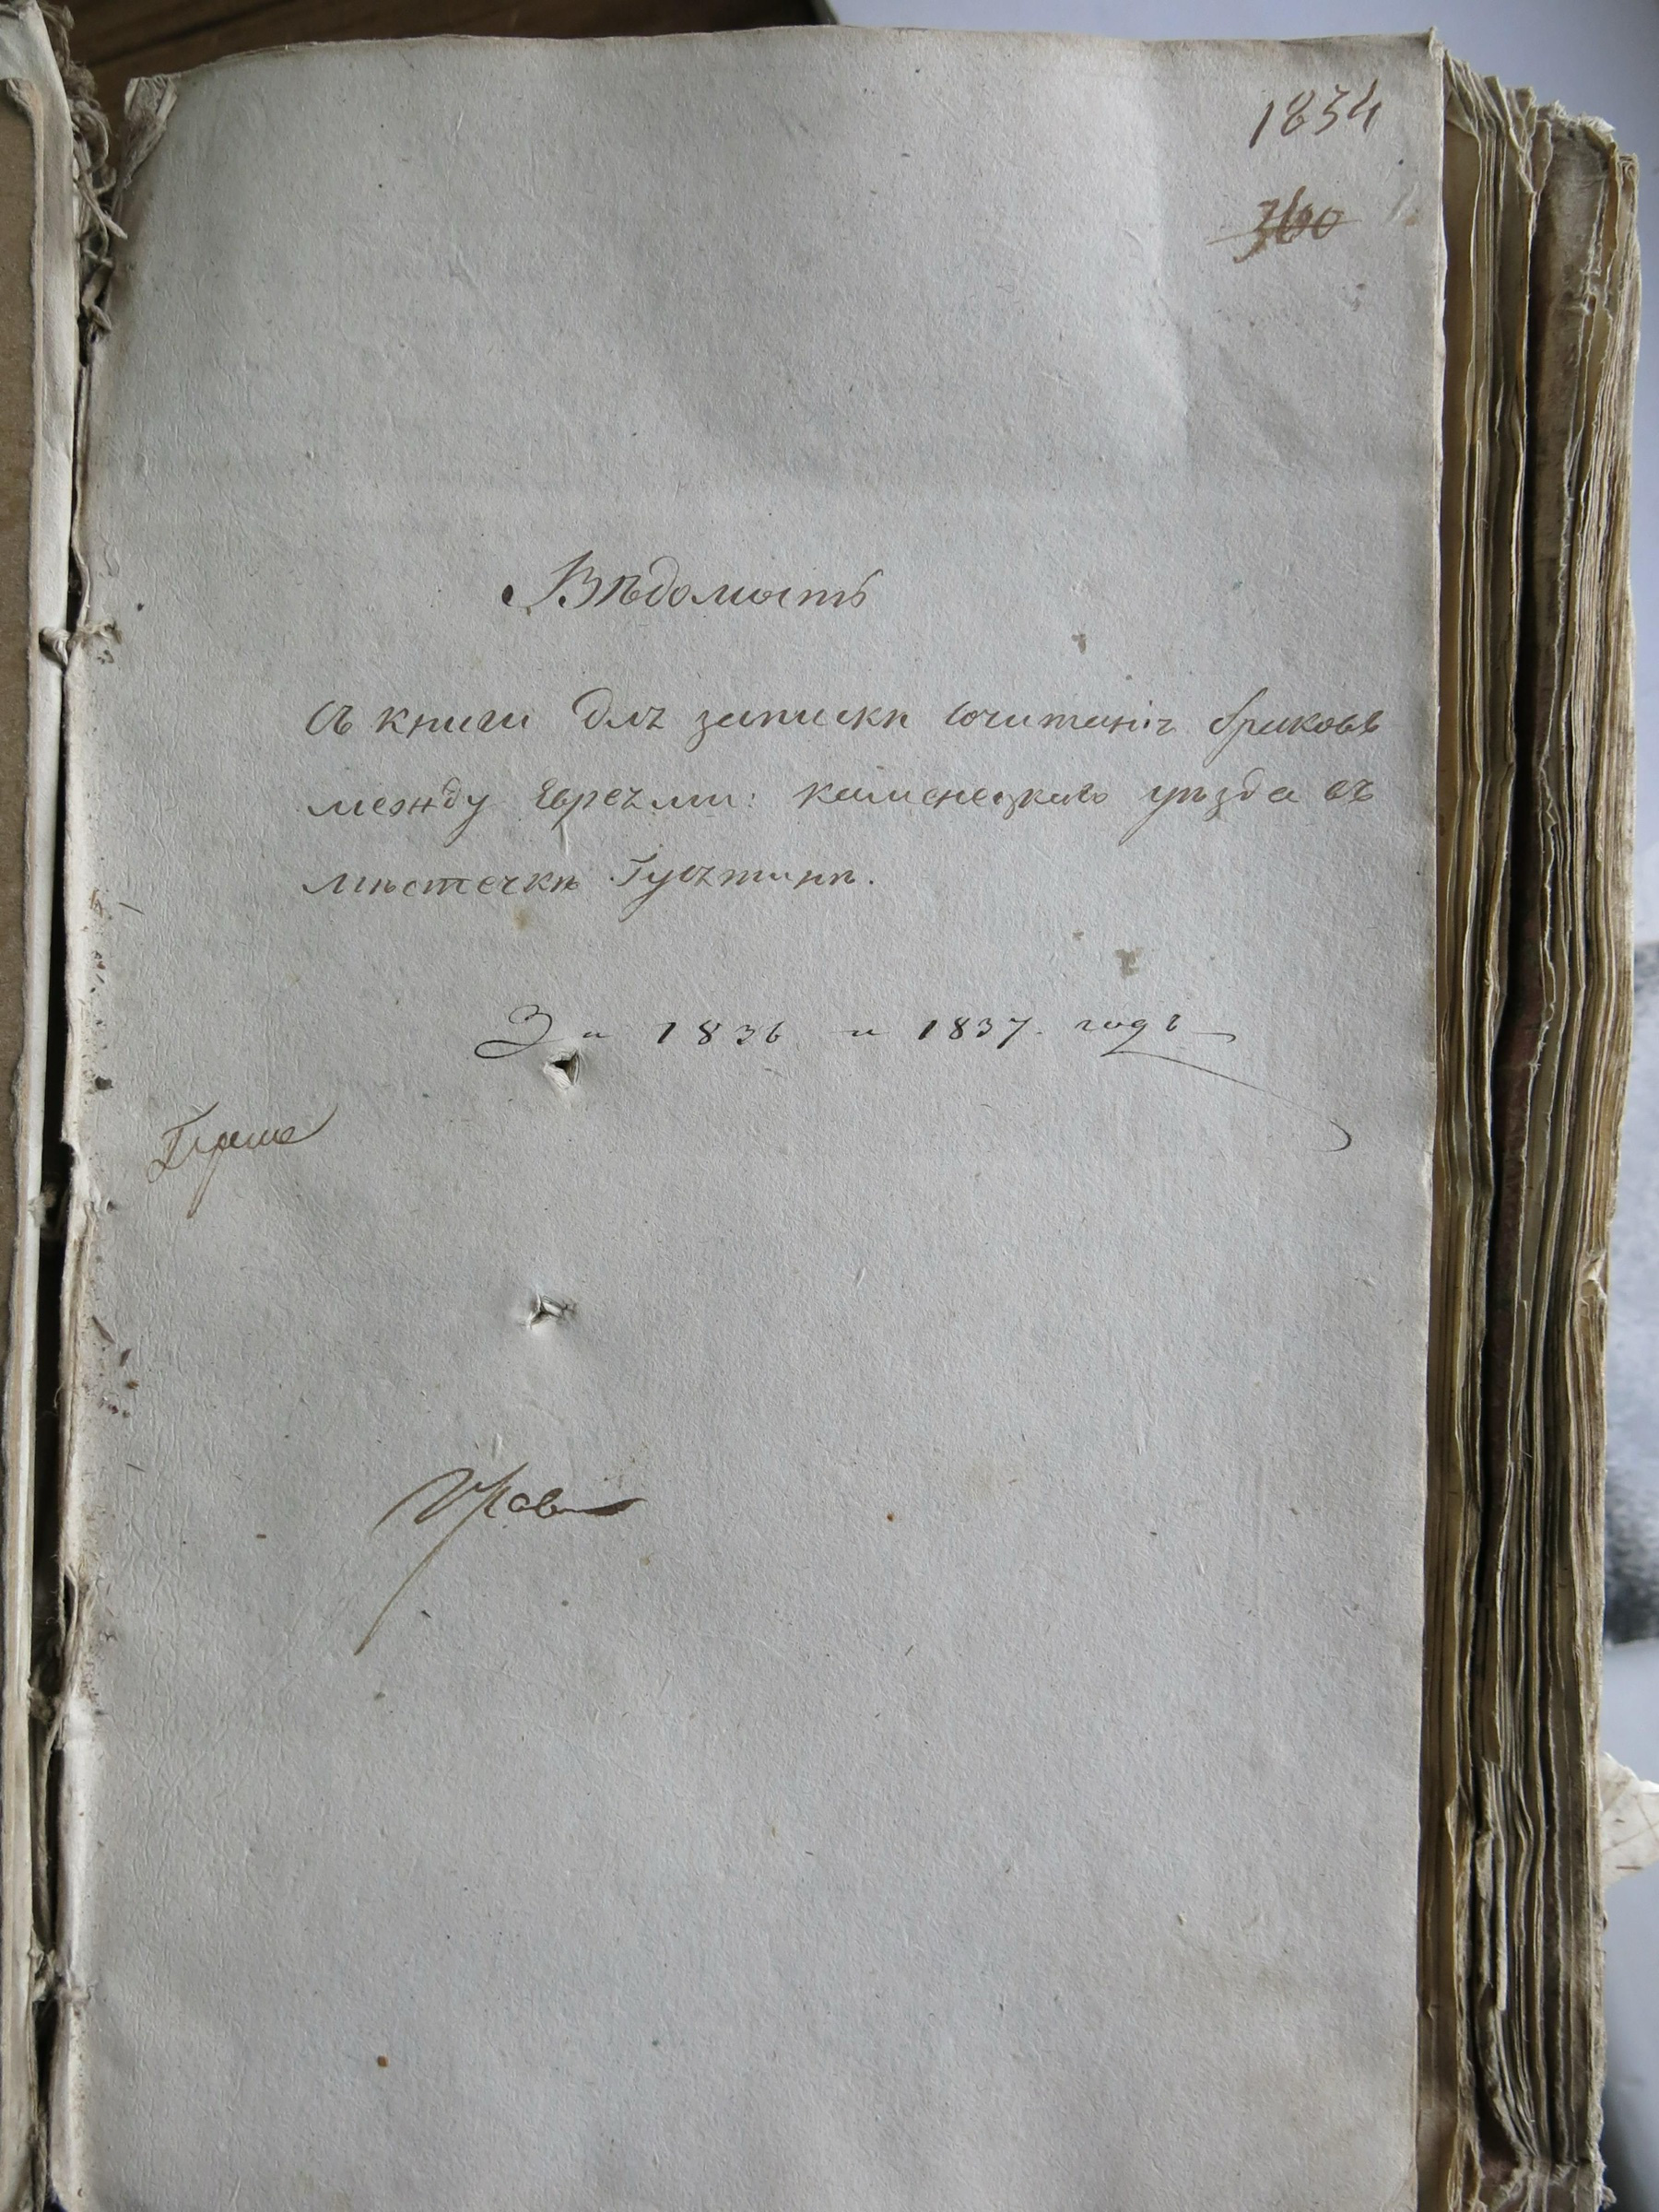 1834
360
Вѣдомость
Съ книги для записки сочитанія браковъ
между Евреями: каменецкаго уѣзда въ
мѣстечкѣ Гусятинѣ.
За 1836 и 1837. годъ